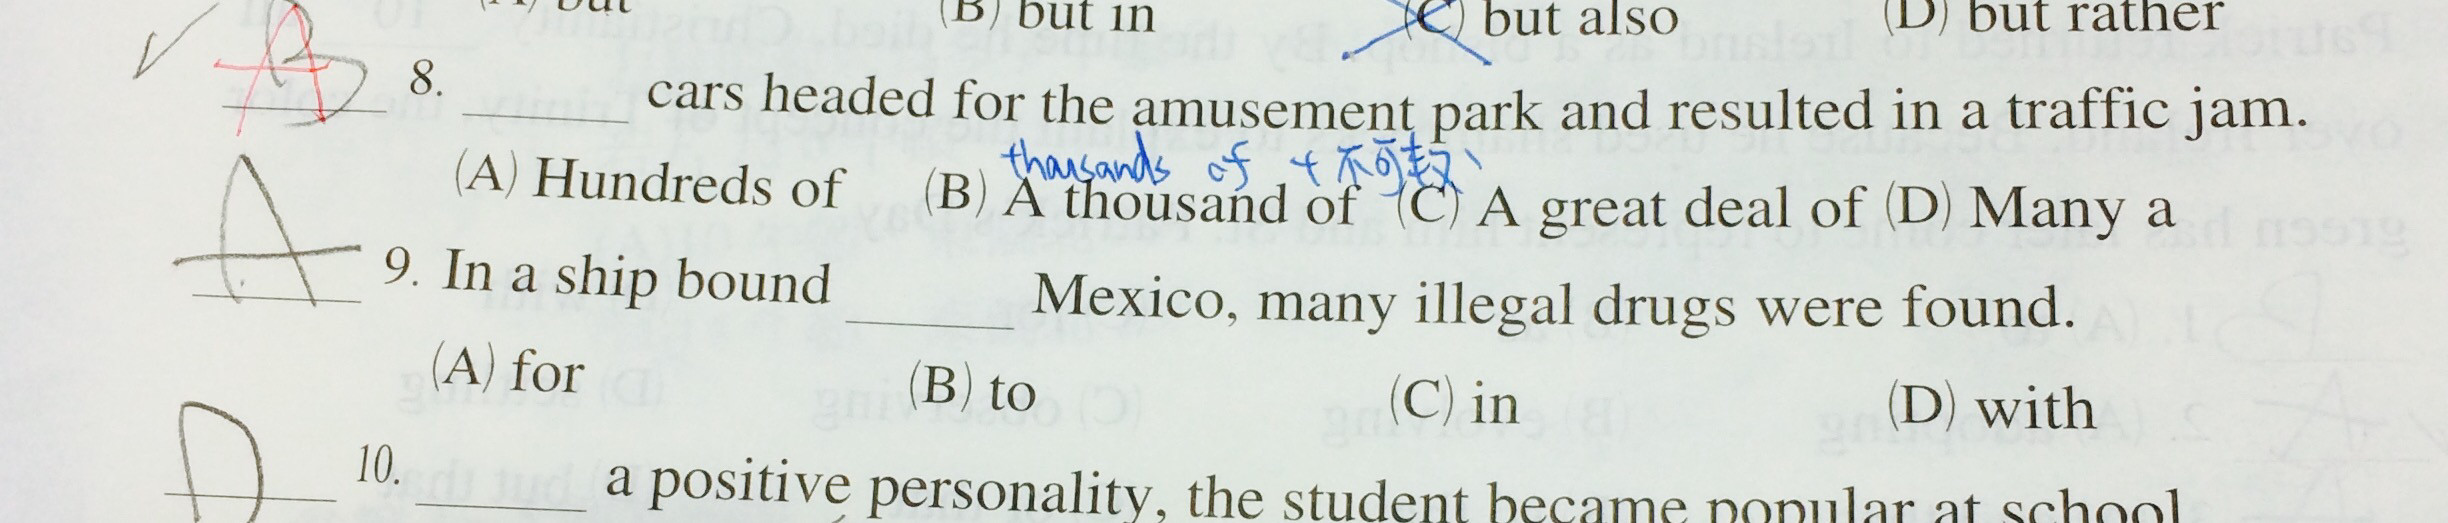 but (B) but in (C) but also (D) but rather
A B 8. ______ cars headed for the amusement park and resulted in a traffic jam.
thousands of + 不可数
(A) Hundreds of (B) A thousand of (C) A great deal of (D) Many a
A 9. In a ship bound ______ Mexico, many illegal drugs were found.
(A) for (B) to (C) in (D) with
D 10. ______ a positive personality, the student became popular at school